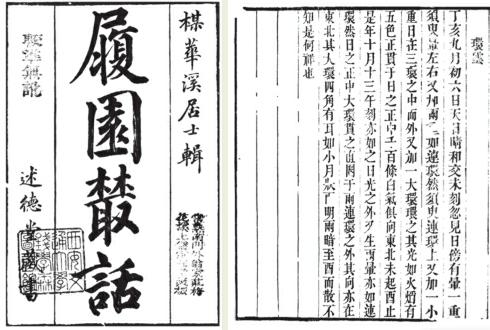 楳華溪居士輯
履園叢話
述德堂藏書
環雲
丁亥九月初六日天日晴和交未刻忽見日傍有暈一重
須臾暈左右又加兩如連環然須臾連環上又加一小
重日在三環之中而外又加一大環環之其光如火焰有
五色正貫于日之正中百條白氣俱向東北未起酉止
是年十月十三午刻亦如之日光之外又生兩暈亦如連
環然日之正中大環貫之直于兩連環之外其向亦在
東北其大環四角有耳如小月狀明兩暗至酉而散不
知是何祥也